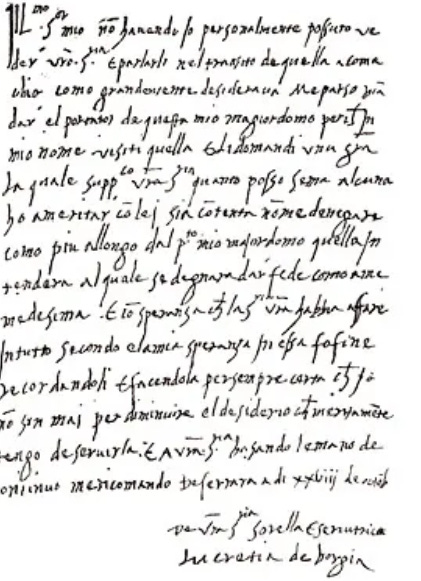 Ill.mo S.or mio nō havendo Jo personalmente possuto ve
der vrā. S.ria E parlarli nel transito de quella a coma
chio como grandemente desiderava Meparso mā
dar el portator de questa mio magiordomo perch̄ in
mio nome visiti quella E li domandi una grā
la quale supp.co vrā S.ria quanto posso sema alcuna
ho a meritar cō lej sia cōtenta nōme denegare
como piu allongo dal p.to mio majordomo quella In
tendera al quale se degnara dar fede como a me
medesema. E iō speransa ch̄ la S.ria vrā habba affare
In tutto secondo e la mia speransa In essa fo fine
recordandoli E facendola per sempre certa ch̄ Jo
nō son mai per diminuire el desiderio ch̄ meritamēte
tengo de servirla. E A vrā S.ria basando le mano de
continuo me ricomando De ferrara a di xxviiij de octob
De vrā S.ria Sorella E servitrice
Lucretia de borgia